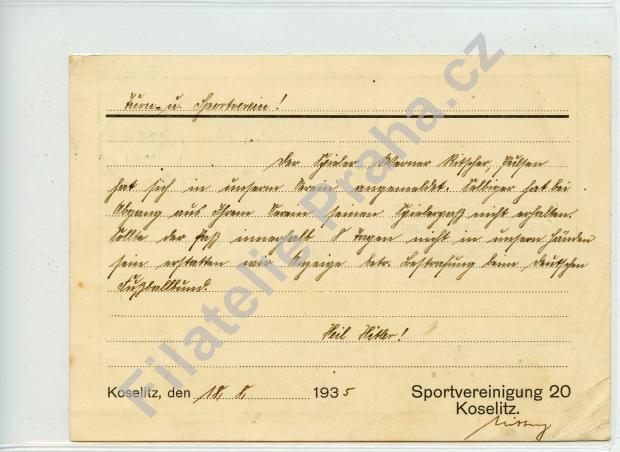 Turn- u. Sportverein!
Der Spieler Werner Ritscher, Pulsen
hat sich in unserm Verein angemeldet. Selbiger hat bei
Abgang aus Ihrem Verein seinen Spielerpaß nicht erhalten.
Sollte der Paß innerhalb 8 Tagen nicht in unsern Händen
sein erstatten wir Anzeige betr. Bestrafung beim Deutschen
Fußballbund.
Heil Hitler!
Koselitz, den 18. 8. 1935
Sportvereinigung 20
Koselitz.
Filatelie Praha.cz